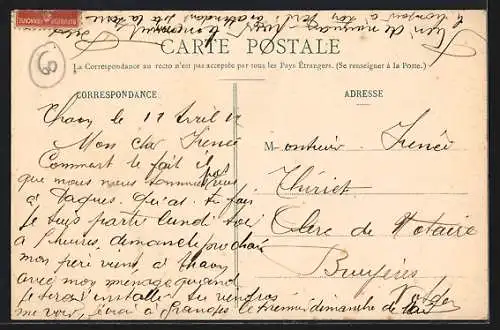 Rien de nouveau
bonjour à ton père
CARTE POSTALE
La Correspondance au recto n'est pas acceptée par tous les Pays Étrangers. (Se renseigner à la Poste.)
CORRESPONDANCE
ADRESSE
Thaon le 11 Avril
Mon cher Irénée
Comment se fait il
que nous nous sommes pas vus
à Pâques. Qu'as-tu fais
je suis parti lundi soir
à 5 heures, dimanche prochain
mon père vient à Thaon
avec mon ménage quand
je serai installé tu viendras
me voir, j'irai à Granges le premier dimanche de Mai
Monsieur Irénée
Thiriet
Clerc de Notaire
Bruyères
Vosges